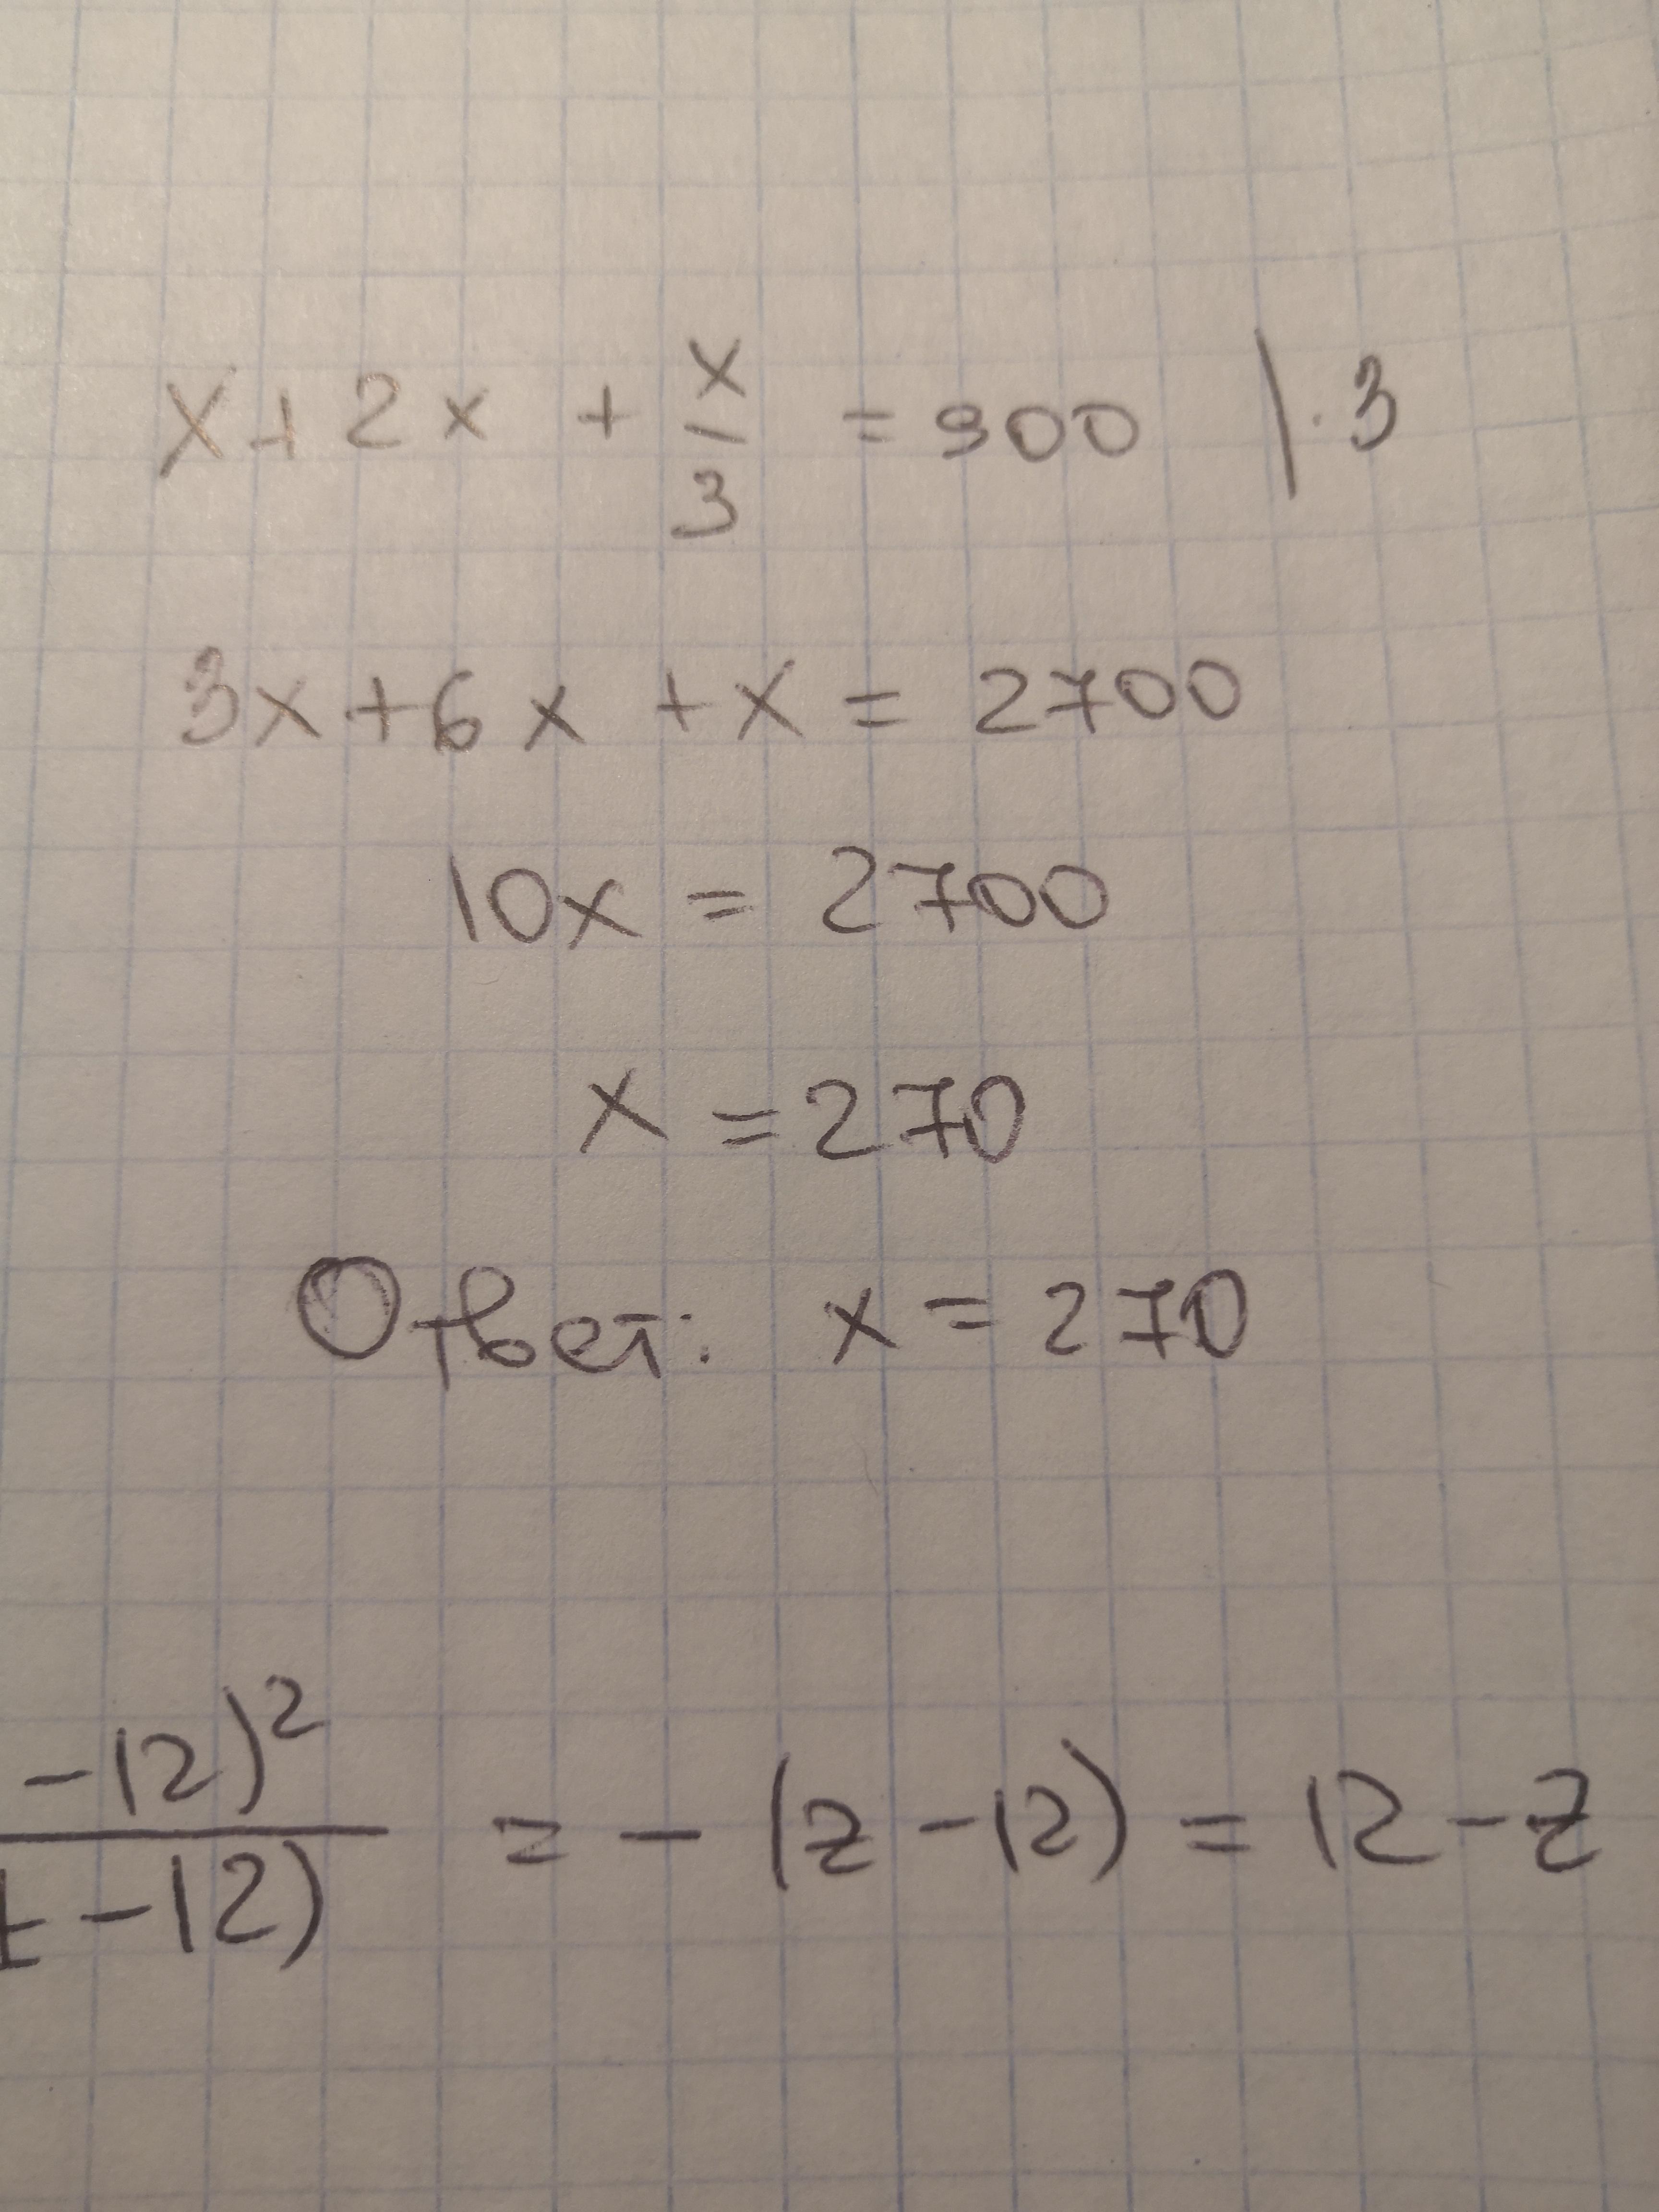 x + 2x + x/3 = 900 | · 3
3x + 6x + x = 2700
10x = 2700
x = 270
Ответ: x = 270
-12)² / -12) = - (z - 12) = 12 - z